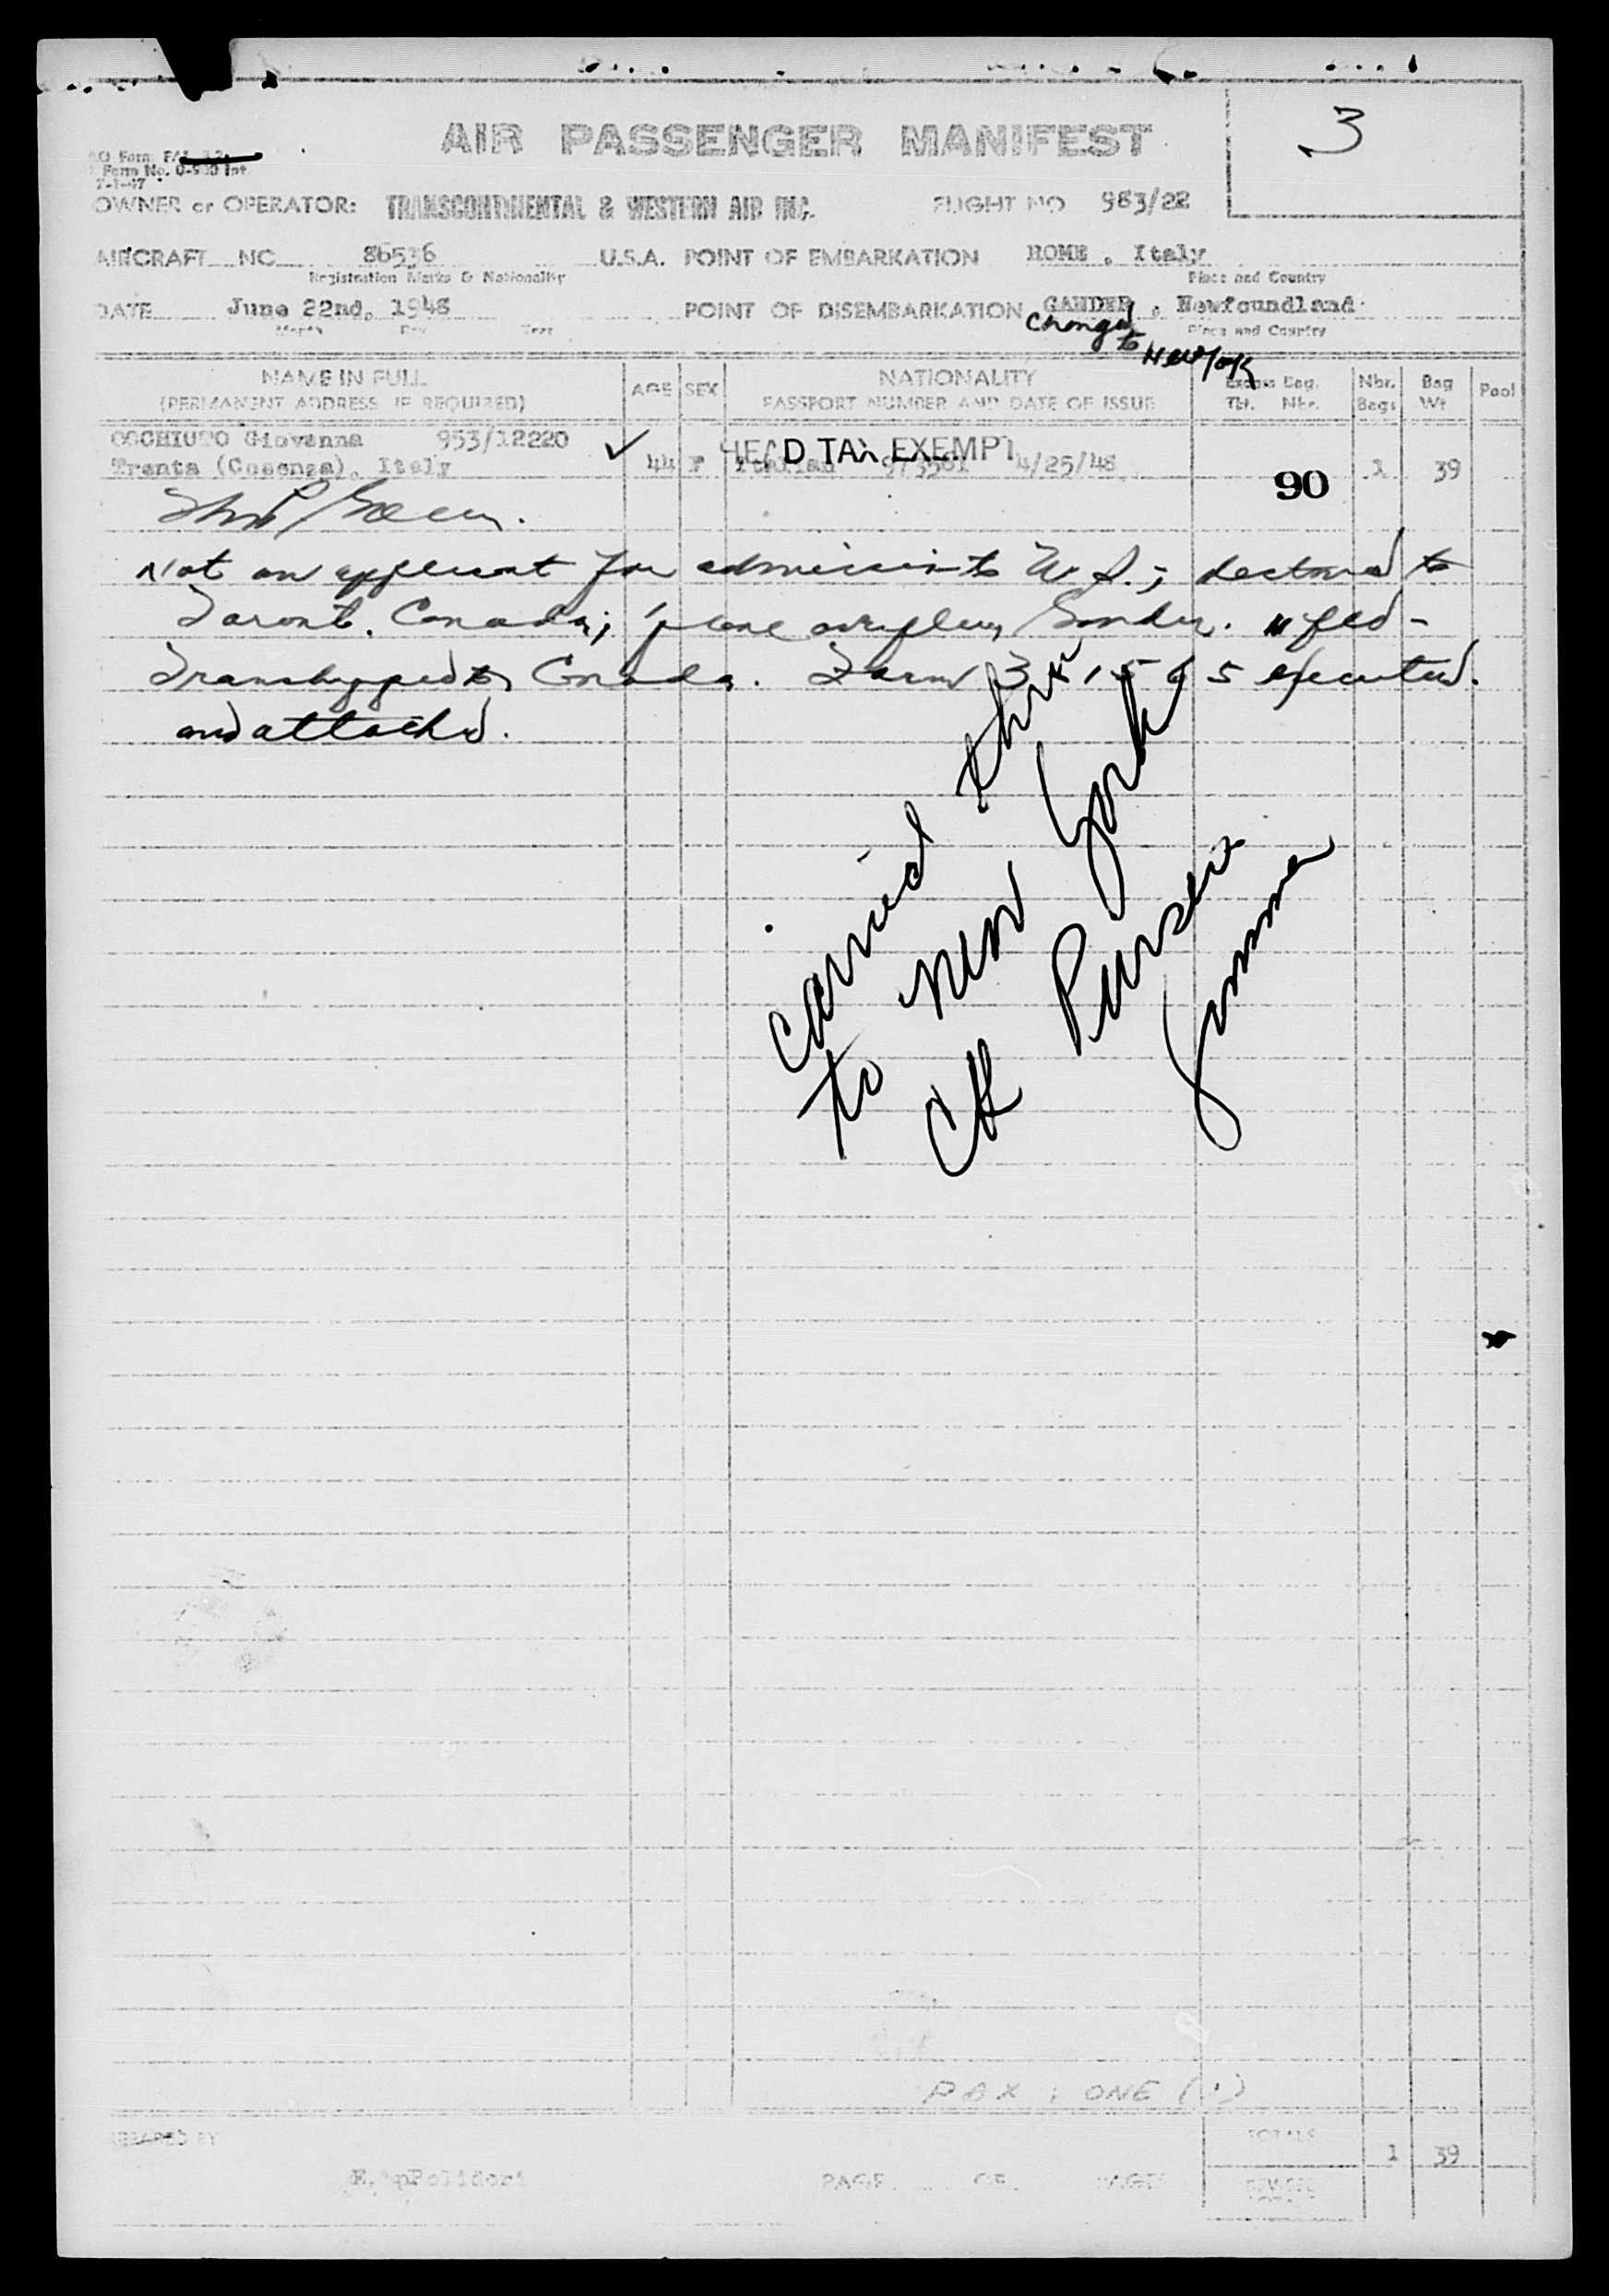 3
AIR PASSENGER MANIFEST
Form No. 0-930 Int.
7-1-47
OWNER or OPERATOR: TRANSCONTINENTAL & WESTERN AIR INC. FLIGHT NO 983/22
AIRCRAFT NC 86536 U.S.A. POINT OF EMBARKATION ROME, Italy
Registration Marks & Nationality Place and Country
DATE June 22nd, 1948 POINT OF DISEMBARKATION GANDER, Newfoundland
Month Day Year Place and Country
Changed to New York
NAME IN FULL AGE SEX NATIONALITY Excess Bag. Nbr. Bag Pool
(PERMANENT ADDRESS IF REQUIRED) PASSPORT NUMBER AND DATE OF ISSUE Tkt. Nbr. Bags Wt
Giovanna 953/12220 HEAD TAX EXEMPT
Trenta (Cosenza), Italy 44 F Italian 4/25/48 90 1 39
Not an applicant for admission to U.S.; destined to
Toronto, Canada; plane overflew Gander.
Transhipped to Canada. Form executed
and attached.
carried thru
to New York
Purser
PAX : ONE (1)
PREPARED BY
TOTALS 1 39
PAGE OF PAGE